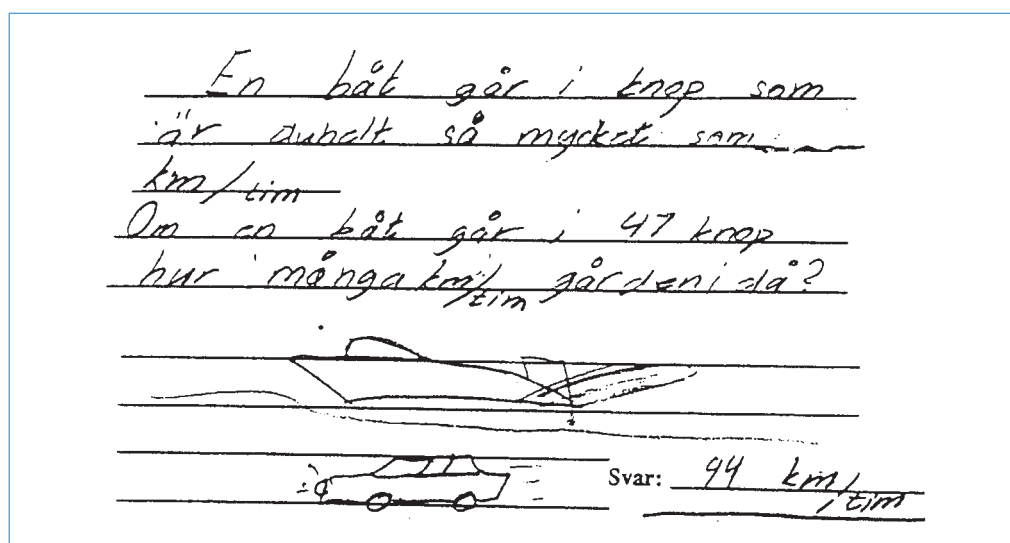 En båt går i knop som
är dubelt så mycket som
km/tim
Om en båt går i 47 knop
hur många km/tim går den i då?
Svar: 94 km/tim